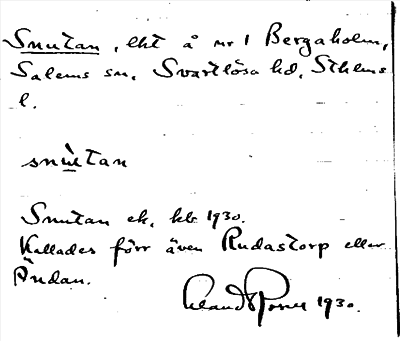 Snutan, lht å nr 1 Bergaholm,
Salems sn, Svartlösa hd, Sthlms
l.
snù̲tan
Snutan ek. kb 1930.
Kallades förr även Rudastorp eller
Ändan.
1930.